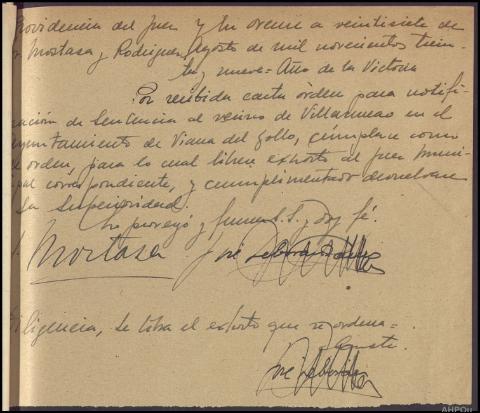 Providencia del Juez y En Orense a veintisiete de
Mostaza y Rodriguez Agosto de mil novecientos trein-
ta y nueve = Año de la Victoria
Por recibida carta órden para notifi-
cación de Sentencia al vecino de Villanueva en el
Ayuntamiento de Viana del Bollo, cúmplase como
se orden, para lo cual libese exhorto al Juez Muni-
pal corres pondiente, y cumplimentado devuelvase
a la Superioridad.
Lo proveyó y firma S. S. Doy fé.
Mostaza José
Diligencia, Se libra el exhorto que se ordena =
José
AHPOu